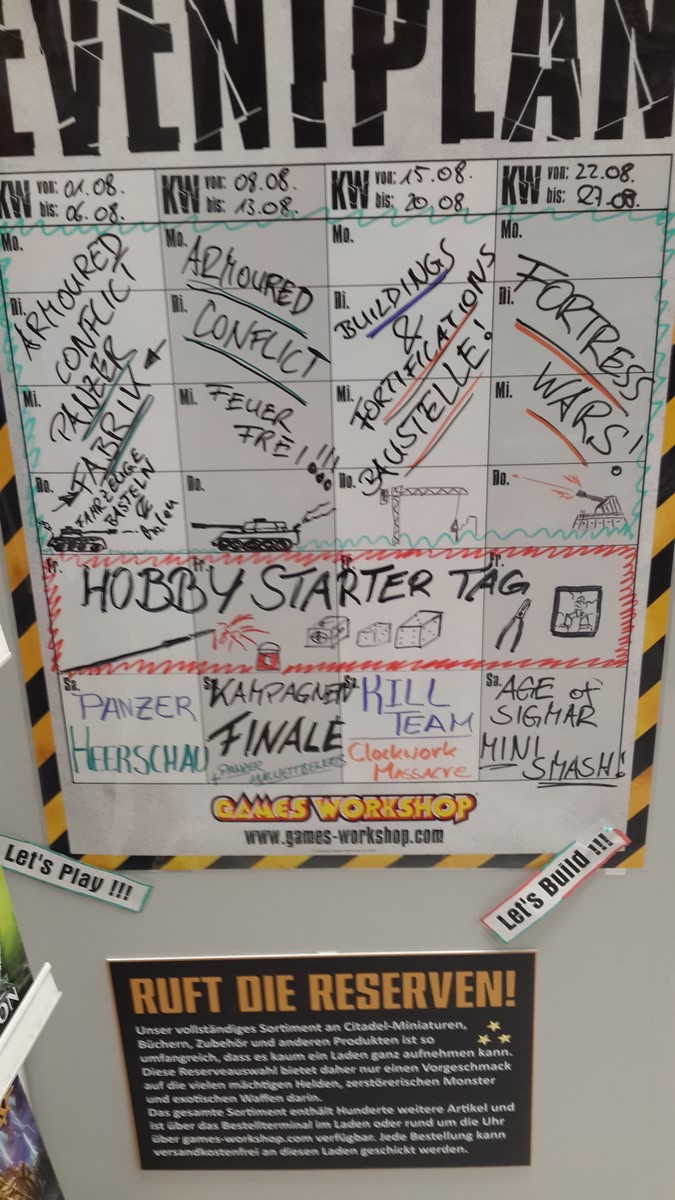 EVENTPLAN
KW von: 01.08.
bis: 06.08.
KW von: 08.08.
bis: 13.08.
KW von: 15.08.
bis: 20.08.
KW von: 22.08.
bis: 27.08.
Mo.
Di.
Mi.
Do.
ARMOURED
CONFLICT
PANZER
FABRIK
FAHRZEUGE
BASTELN
&
Mo.
Di.
Mi.
Do.
ARMOURED
CONFLICT
FEUER
FREI!!!
Mo.
Di.
Mi.
Do.
BUILDINGS
&
FORTIFICATIONS
BAUSTELLE!
Mo.
Di.
Mi.
Do.
FORTRESS
WARS!
Fr. Fr. Fr. Fr.
HOBBY STARTER TAG
Sa.
PANZER
HEERSCHAU
Sa.
KAMPAGNEN
FINALE
+ PANZER
Sa.
KILL
TEAM
Clockwork
Massacre
Sa.
AGE of
SIGMAR
MINI
SMASH!
GAMES WORKSHOP
www.games-workshop.com
Let's Play !!!
Let's Build !!!
RUFT DIE RESERVEN!
Unser vollständiges Sortiment an Citadel-Miniaturen,
Büchern, Zubehör und anderen Produkten ist so
umfangreich, dass es kaum ein Laden ganz aufnehmen kann.
Diese Reserveauswahl bietet daher nur einen Vorgeschmack
auf die vielen mächtigen Helden, zerstörerischen Monster
und exotischen Waffen darin.
Das gesamte Sortiment enthält Hunderte weitere Artikel und
ist über das Bestellterminal im Laden oder rund um die Uhr
über games-workshop.com verfügbar. Jede Bestellung kann
versandkostenfrei an diesen Laden geschickt werden.
ON